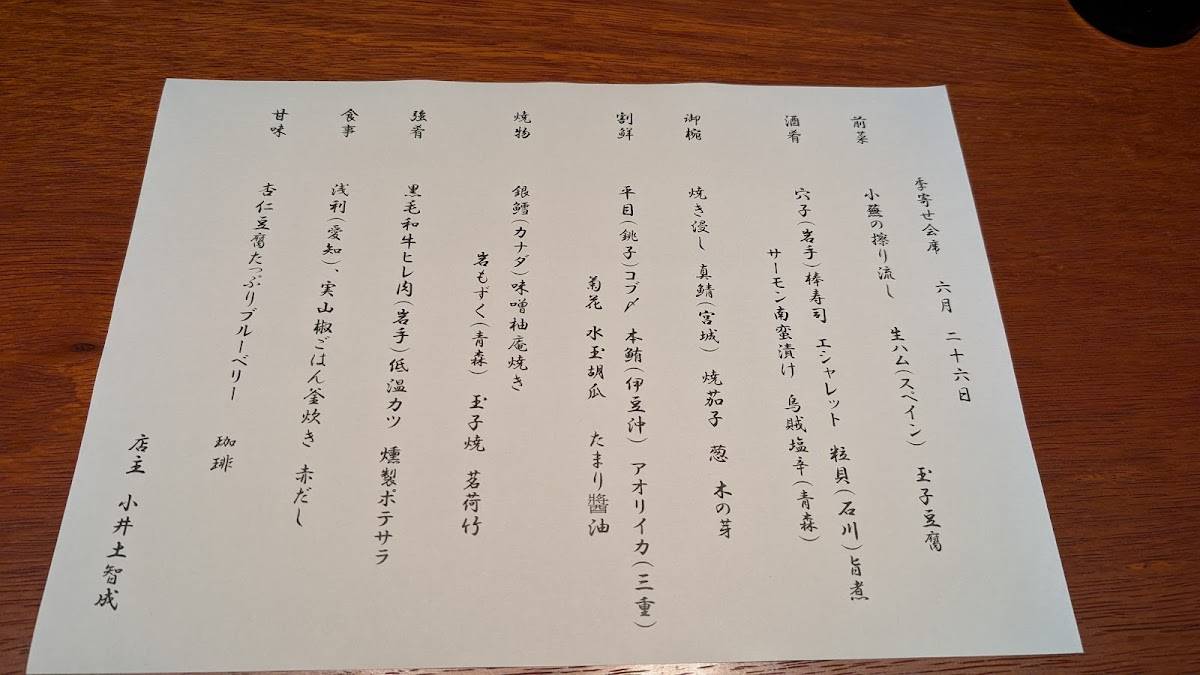 季寄せ会席 六月 二十六日
前菜 小蕪の擦り流し 生ハム(スペイン) 玉子豆腐
酒肴 穴子(岩手)棒寿司 エシャレット 粒貝(石川)旨煮
サーモン南蛮漬け 烏賊塩辛(青森)
御椀 焼き浸し 真鯖(宮城) 焼茄子 葱 木の芽
割鮮 平目(銚子)コブ〆 本鮪(伊豆沖) アオリイカ(三重)
菊花 水玉胡瓜 たまり醬油
焼物 銀鱈(カナダ)味噌柚庵焼き
岩もずく(青森) 玉子焼 茗荷竹
強肴 黒毛和牛ヒレ肉(岩手)低温カツ 燻製ポテサラ
食事 浅利(愛知)、実山椒ごはん釜炊き 赤だし
甘味 杏仁豆腐たっぷりブルーベリー
珈琲
店主 小井土智成